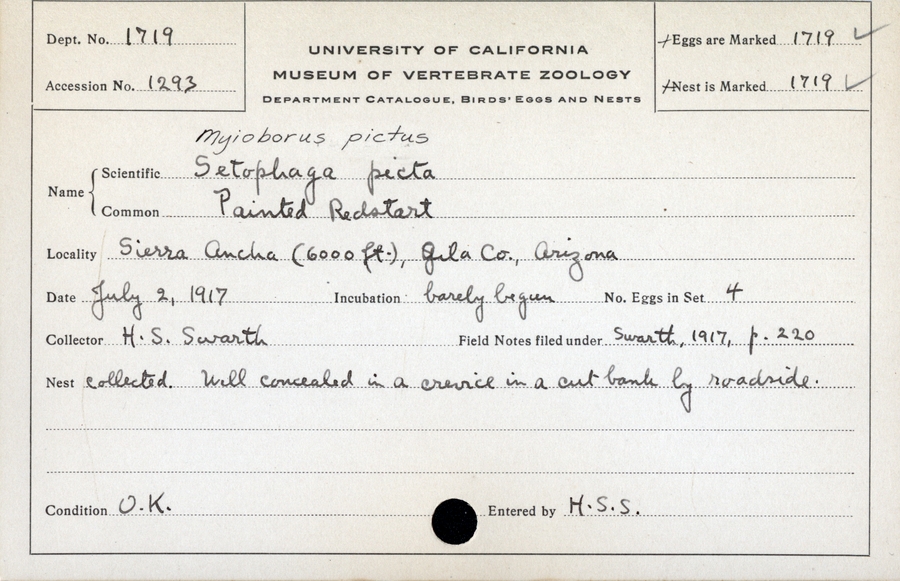 Dept. No. 1719
Accession No. 1293
UNIVERSITY OF CALIFORNIA
MUSEUM OF VERTEBRATE ZOOLOGY
DEPARTMENT CATALOGUE, BIRDS' EGGS AND NESTS
Eggs are Marked 1719 ✓
Nest is Marked 1719 ✓
Myioborus pictus
Name
Scientific Setophaga picta
Common Painted Redstart
Locality Sierra Ancha (6000 ft.), Gila Co., Arizona
Date July 2, 1917 Incubation barely begun No. Eggs in Set 4
Collector H. S. Swarth Field Notes filed under Swarth, 1917, p. 220
Nest collected. Well concealed in a crevice in a cut bank by roadside.
Condition O.K. Entered by H.S.S.